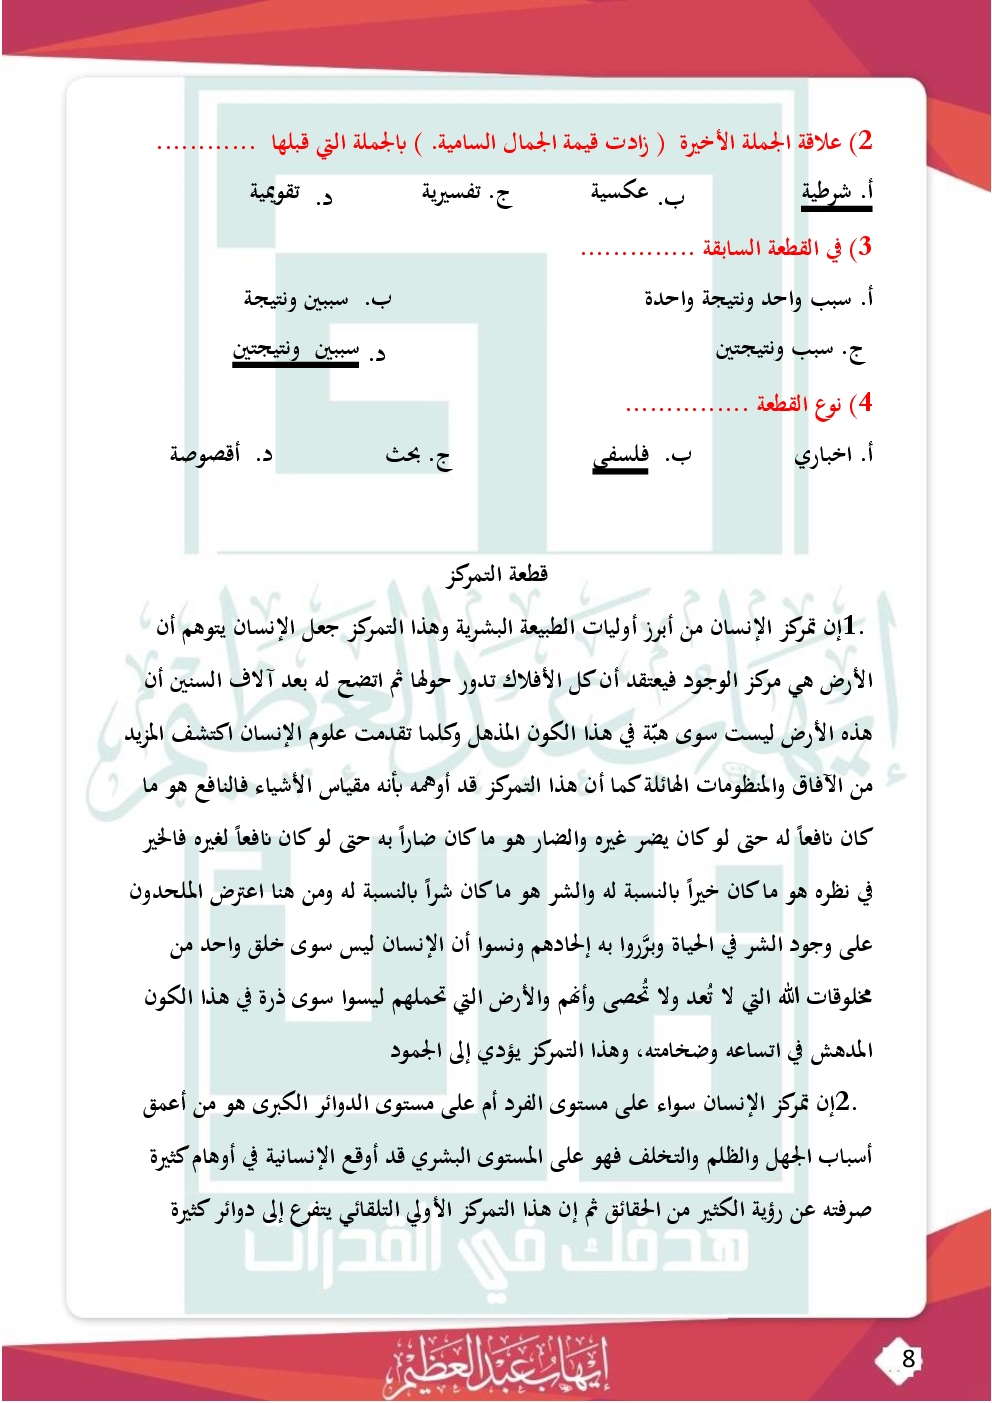 2) علاقة الجملة الأخيرة ( زادت قيمة الجمال السامية. ) بالجملة التي قبلها ............
أ. شرطية ب. عكسية ج. تفسيرية د. تقويمية
3) في القطعة السابقة ..............
أ. سبب واحد ونتيجة واحدة ب. سببين ونتيجة
ج. سبب ونتيجتين د. سببين ونتيجتين
4) نوع القطعة ...............
أ. اخباري ب. فلسفي ج. بحث د. أقصوصة
قطعة التمركز
1.إن تمركز الإنسان من أبرز أوليات الطبيعة البشرية وهذا التمركز جعل الإنسان يتوهم أن
الأرض هي مركز الوجود فيعتقد أن كل الأفلاك تدور حولها ثم اتضح له بعد آلاف السنين أن
هذه الأرض ليست سوى هبّة في هذا الكون المذهل وكلما تقدمت علوم الإنسان اكتشف المزيد
من الآفاق والمنظومات الهائلة كما أن هذا التمركز قد أوهمه بأنه مقياس الأشياء فالنافع هو ما
كان نافعاً له حتى لو كان يضر غيره والضار هو ما كان ضاراً به حتى لو كان نافعاً لغيره فالخير
في نظره هو ما كان خيراً بالنسبة له والشر هو ما كان شراً بالنسبة له ومن هنا اعترض الملحدون
على وجود الشر في الحياة وبرَّروا به إلحادهم ونسوا أن الإنسان ليس سوى خلق واحد من
مخلوقات الله التي لا تُعد ولا تُحصى وأنهم والأرض التي تحملهم ليسوا سوى ذرة في هذا الكون
المدهش في اتساعه وضخامته، وهذا التمركز يؤدي إلى الجمود
2.إن تمركز الإنسان سواء على مستوى الفرد أم على مستوى الدوائر الكبرى هو من أعمق
أسباب الجهل والظلم والتخلف فهو على المستوى البشري قد أوقع الإنسانية في أوهام كثيرة
صرفته عن رؤية الكثير من الحقائق ثم إن هذا التمركز الأولي التلقائي يتفرع إلى دوائر كثيرة
هدفك في القدرات
إيهاب عبد العظيم
8